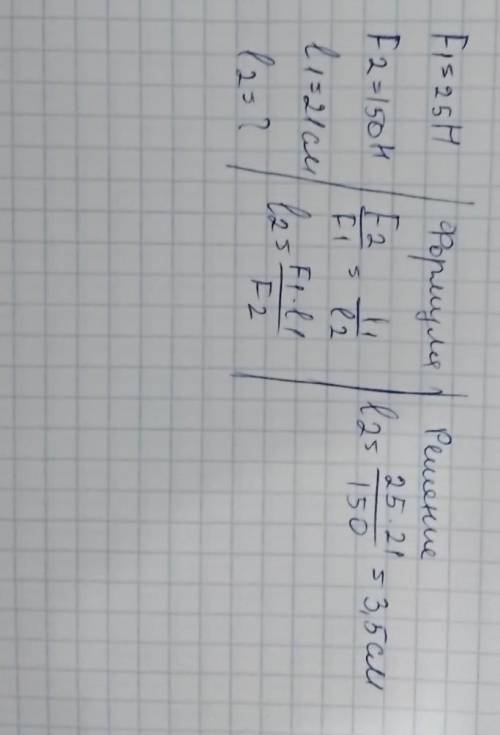 F1=25H
F2=150H
l1=21см
l2=?
Формула
F2/F1 = l1/l2
l2= F1·l1/F2
Решение
l2= 25·21/150 = 3,5см